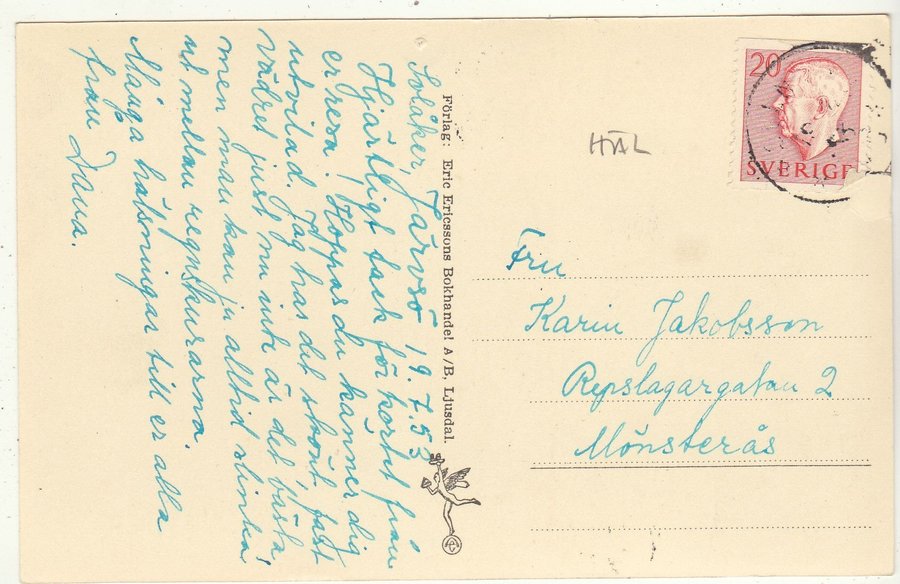 Solåker, Järvsö 19.7.53
Hjärtligt tack för kortet från
er resa! Hoppas du känner dig
utvilad. Jag har det skönt, fast
vädret just nu inte är det bästa,
men man kan ju alltid slinka
ut mellan regnskurarna.
Många hälsningar till er alla
från Dana.
Förlag: Eric Ericssons Bokhandel A/B, Ljusdal.
HÄL
20
SVERIGE
Fru
Karin Jakobsson
Repslagargatan 2
Mönsterås